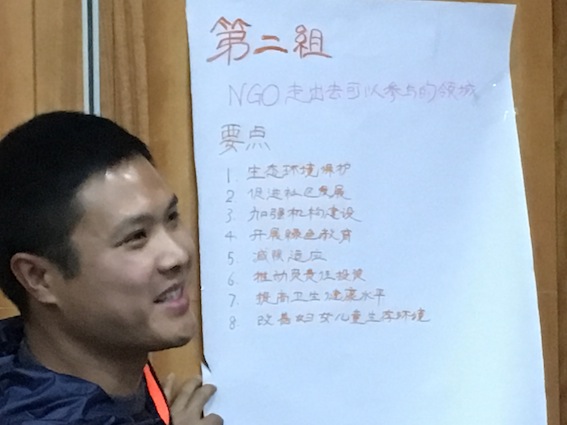 第二組
NGO 走出去可以参与的领域
要点
1. 生态环境保护
2. 促进社区发展
3. 加强机构建设
4. 开展绿色教育
5. 减缓适应
6. 推动负责任投资
7. 提高卫生健康水平
8. 改善妇女儿童生存环境